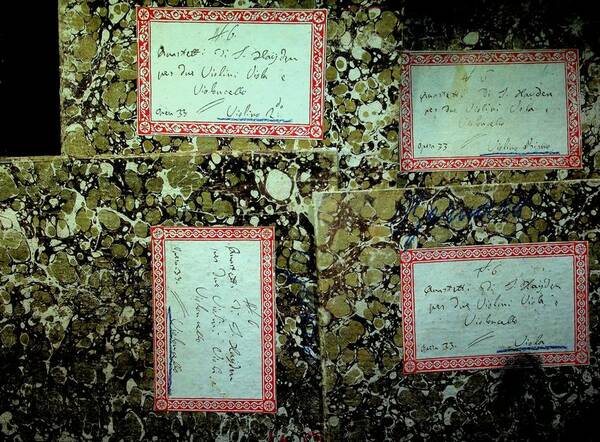 № 6
Quartetti Di S. Hayden
per due Violini Viola e
Violoncello
opera 33. Violino 2do
№ 6
Quartetti Di S. Hayden
per due Violini Viola e
Violoncello
opera 33 Violino Primo
№ 6
Quartetti Di S. Hayden
per due Violini Viola e
Violoncello
opera 33. Violoncello
№ 6
Quartetti Di S. Hayden
per due Violini Viola e
Violoncello
opera 33. Viola